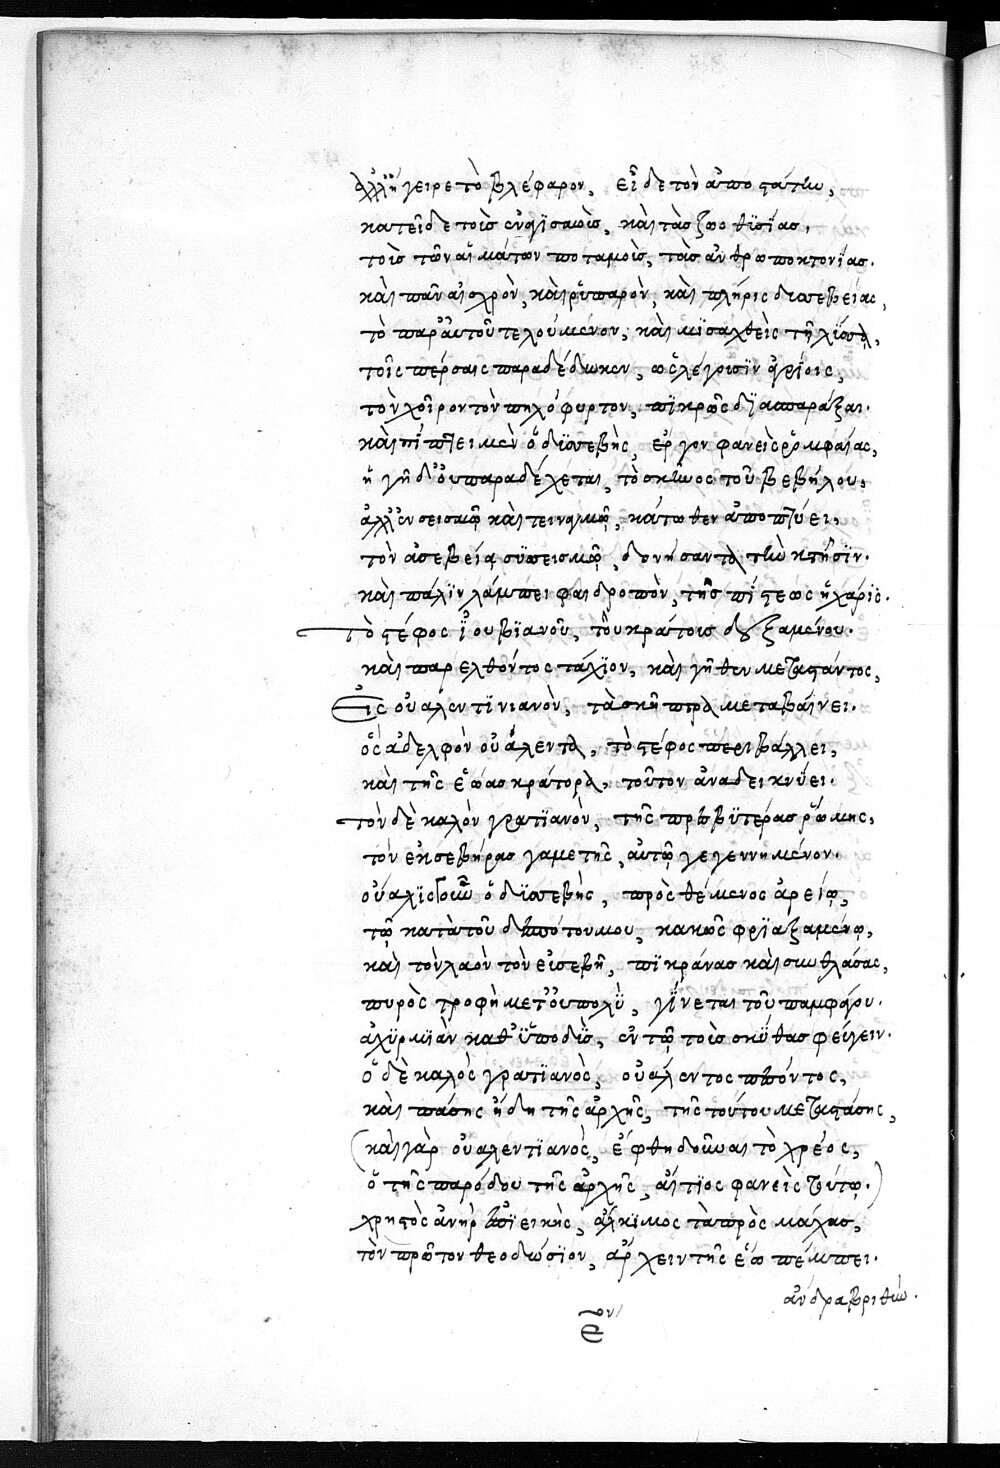 ἀλλ' ἤγειρε τὸ βλέφαρον, εἶδε τὸν ἀποστάτην,
κατεῖδε τοὺς ἐναγισμοὺς, καὶ τὰς ζωοθϋσΐας,
τοὺς τῶν αἱμάτων ποταμοὺς, τὰς ἀνθρωποκτονΐας.
καὶ πᾶν αἰσχρὸν, καὶ ῥυπαρὸν, καὶ πλῆρες δυσσεβείας,
τὸ παρ' αὐτοῦ τελούμενον, καὶ μϋσαχθεὶς τῇ λύσσῃ,
τοῖς πέρσαις παραδέδωκεν, ὡς λέγουσϊν ἀγρΐοις,
τὸν χοῖρον τὸν πηλόφυρτον, πϊκρῶς δϊασπαράξαι.
καὶ πΐπτει μὲν ὁ δϋσσεβὴς, ἔργον φανεὶς ῥομφαίας,
ἡ γῆ δ' οὐ παραδέχεται, τὸ σκῆνος τοῦ βεβήλου,
ἀλλ' ἐν σεισμῷ καὶ τειναγμῷ, κάτωθεν ἀποπτύει,
τὸν ἀσεβείας συσσεισμῷ, δονήσαντα τὴν κτῆσϊν.
καὶ πάλϊν λάμπει φαιδρωπὸν, τῆς πΐστεως ἡ χάρϊς.
Τὸ στέφος ϊουβϊανοῦ, τοῦ κράτους δεξαμένου.
καὶ παρελθόντος τάχϊον, καὶ γῆθεν μεταστάντος,
Εἰς οὐαλεντϊνιανὸν, τὰ σκῆπτρα μεταβαίνει.
ὃς ἀδελφὸν οὐάλεντα, τὸ στέφος περιβάλλει,
καὶ τῆς ἑῴας κράτορα, τοῦτον ἀναδεικνύει.
τὸν δὲ καλὸν γρατϊανὸν, τῆς πρεσβϋτέρας ῥώμης,
τὸν ἐκ σεβήρας γαμετῆς, αὐτῷ γεγεννημένον.
οὐάλης γοῦν ὁ δϋσσεβὴς, προσθέμενος ἀρείῳ,
τῷ κατὰ τοῦ δεσπότου μου, κακῶς φρϋαξαμένῳ,
καὶ τὸν λαὸν τὸν εὐσεβῆ, πϊκράνας καὶ συνθλάσας,
πυρὸς τροφὴ μετ' οὐ πολὺ, γΐνεται τοῦ παμφάγου.
ἀχϋρμϊὰν καθϋποδὺς, ἐν τῷ τοὺς σκύθας φεύγειν.
Ὁ δὲ καλὸς γρατϊανὸς, οὐάλεντος πεσόντος,
καὶ πάσης ἤδη τῆς ἀρχῆς, τῆς τούτου μεταστάσης,
(καὶ γὰρ οὐαλεντϊανὸς, ἔφθη δοῦναι τὸ χρέος,
ὁ τῆς παρόδου τῆς ἀρχῆς, αἴτϊος φανεὶς τούτῳ.)
χρηστὸς ἀνὴρ ἐπϊεικὴς, ἄλκϊμος τὰ πρὸς μάχας,
τὸν πρῶτον θεοδώσϊον, ἄρχειν τῆς ἕω πέμπει.
ἄνδρα βριθὺν.